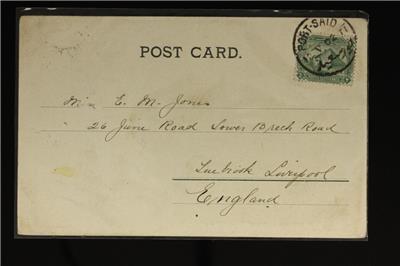 PORT-SAID
POST CARD.
Miss E. M. Jones
26 June Road Lower Breck Road
Tuebrook Liverpool
England